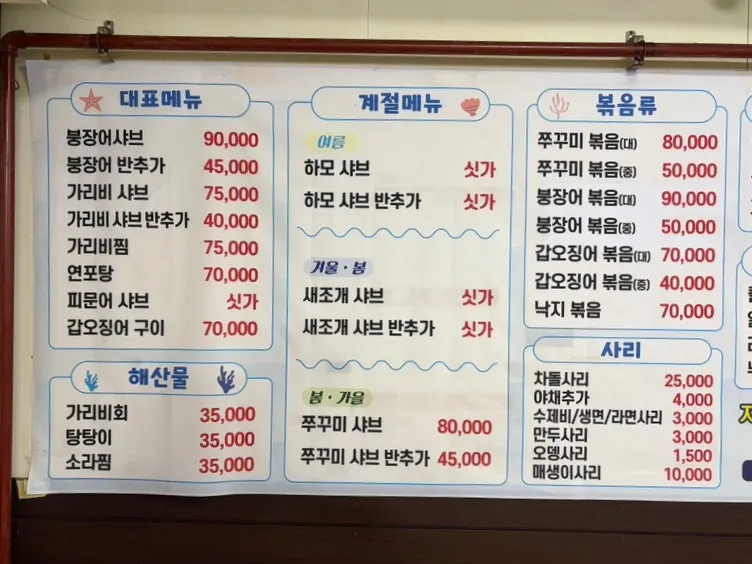 대표메뉴
붕장어샤브 90,000
붕장어 반추가 45,000
가리비 샤브 75,000
가리비 샤브 반추가 40,000
가리비찜 75,000
연포탕 70,000
피문어 샤브 싯가
갑오징어 구이 70,000
해산물
가리비회 35,000
탕탕이 35,000
소라찜 35,000
계절메뉴
여름
하모 샤브 싯가
하모 샤브 반추가 싯가
겨울·봄
새조개 샤브 싯가
새조개 샤브 반추가 싯가
봄·가을
쭈꾸미 샤브 80,000
쭈꾸미 샤브 반추가 45,000
볶음류
쭈꾸미 볶음(대) 80,000
쭈꾸미 볶음(중) 50,000
붕장어 볶음(대) 90,000
붕장어 볶음(중) 50,000
갑오징어 볶음(대) 70,000
갑오징어 볶음(중) 40,000
낙지 볶음 70,000
사리
차돌사리 25,000
야채추가 4,000
수제비/생면/라면사리 3,000
만두사리 3,000
오뎅사리 1,500
매생이사리 10,000